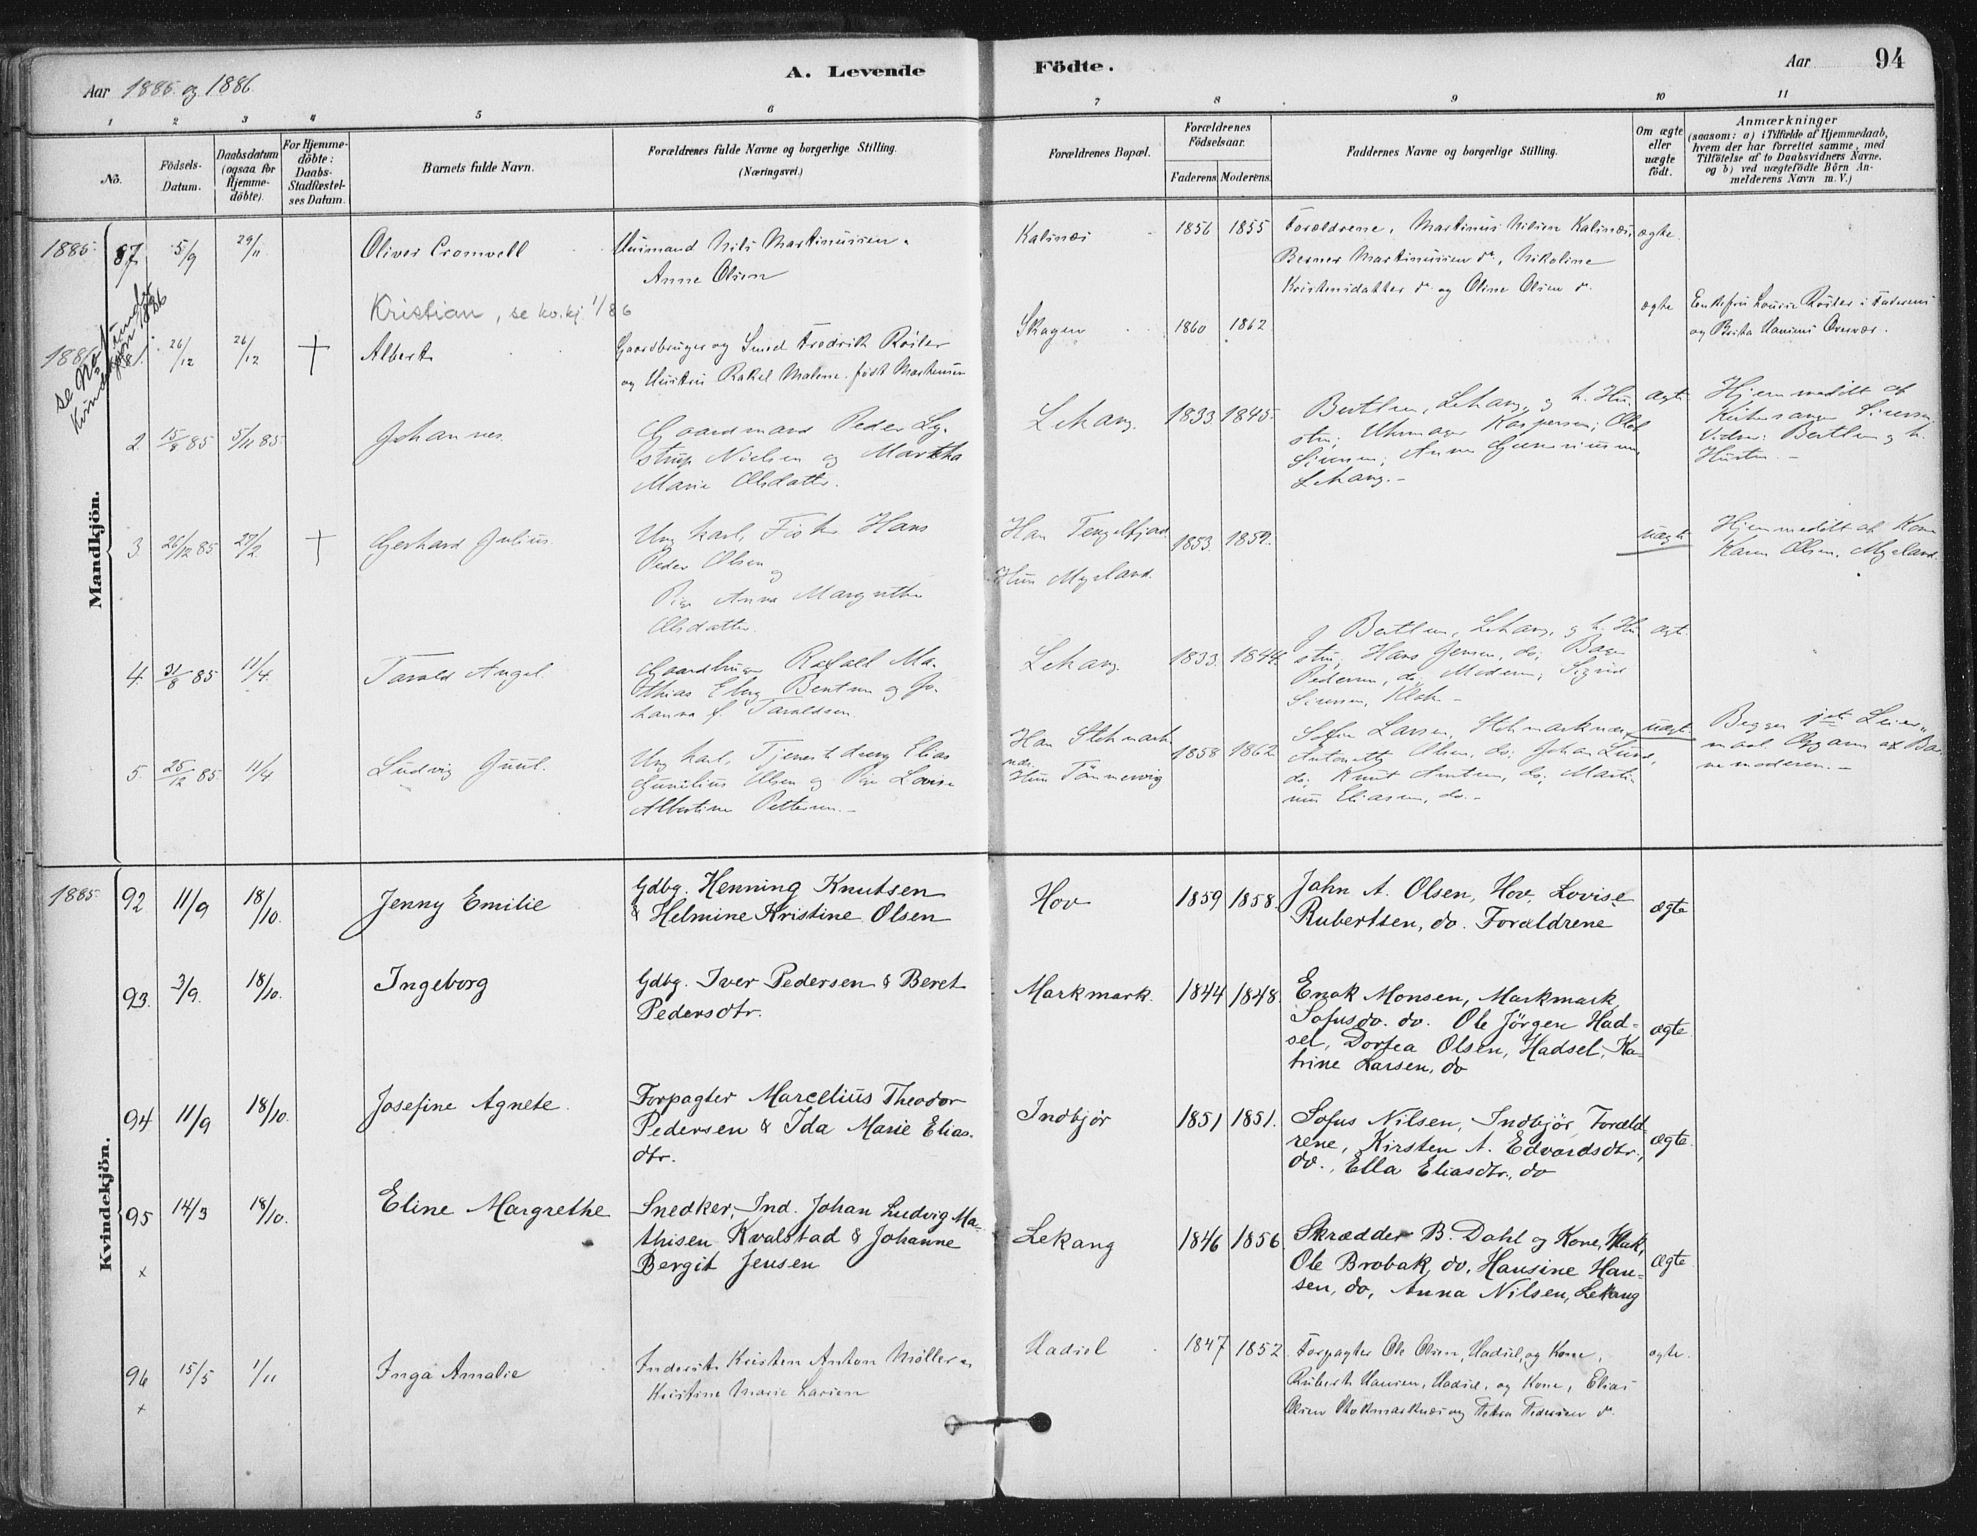 Aar 1885 og 1886
A. Levende Födte.
Aar 94
1 2 3 4 5 6 7 8 9 10 11
No.
Födsels-Datum.
Daabsdatum (ogsaa for Hjemmedöbte).
For Hjemmedöbte: Daabs-Stadfæstelses Datum.
Barnets fulde Navn.
Forældrenes fulde Navne og borgerlige Stilling. (Næringsvei.)
Forældrenes Bopæl.
Forældrenes Födselsaar.
Faderens. Moderens.
Faddernes Navne og borgerlige Stilling.
Om ægte eller uægte födt.
Anmærkninger
(saasom: a) i Tilfælde af Hjemmedaab,
hvem der har forrettet samme, med
Tilföielse af to Daabsvidners Navne.
og b) ved uægtefödte Börn Anmelderens Navn m. V.)
Mandkjön.
1885 87. 5/9 29/11 Oliver Cromvell
Huusmand Nils Martinussen
Anne Olsen
Kalsnæs 1856 1855
Forældrene, Martinus Nilsen Kalsnæs, ægte
Berner Martinussen do, Nikoline
Kristensdatter do og Oline Olsen do
Kristian, se kv.kj. 1/86
26/12 26/12 + Albert
Gaardbruger og Smed Fredrik Röiler
og Hustru Rakel Malene født Martensen
Skagen 1860 1862 ægte
Enkefru Lovise Röiler i Faderens
og Brita
2 15/8 85 5/11 85 Johannes
Gaardmand Peder Ly-
strup Nielsen og Martha
Marie Olsdatter.
Lekang. 1833 1845
Hjemmedøbt af
Kirkesanger
3 26/12 85 27/2 + Gerhard Julius
Ung karl, Fisker Hans
Peder Olsen
og
Pige Anna Margrethe
Olsdatter.
Han Tengelfjord
Hun Myrland.
1853. 1859. uægte
Hjemmedøbt af Kone
Karen Olsen, Myrland.
4. 31/8 85 11/4. Tarald Angel.
Gaardbruger Rafael Ma-
thias Eberg Bentsen og Jo-
hanna f. Taraldsen.
Lekang 1833. 1844.
Hans Jensen, do;
Pedersen, do; Moderen; Sigrid
5. 25/12 85 11/4 Ludvig Juul.
Ung karl, Tjenestedreng Elias
Gunelius Olsen og Pige Lovise
Albertine Pettersen.-
Han Stokmarknæs.
Hun Tönnervig
1858 1862 uægte
Sofie Larsen, Stokmarknæs,
Antonette Olsen, do; Johan Lund,
do; Knut Knutsen, do; Marti-
nus Eliasen, do.-
Begges 1ste Leier-
maal Opgann af Bar-
nemoderen.-
Kvindekjön.
1885. 92 11/9 18/10. Jenny Emilie
Gdbg. Henning Knutsen
& Helmine Kristine Olsen
Hov 1859 1858.
John A. Olsen, Hov, Lovise
Rubertsen, do. Forældrene
ægte
93. 3/9. 18/10. Ingeborg
Gdbg. Iver Pedersen & Beret
Pedersdtr.
Markmark. 1844 1848.
Enok Monsen, Markmark,
Sofus do. do. Ole Jörgen Had-
sel, Dortea Olsen, Hadsel, Ka-
trine Larsen, do
ægte
94 11/9 18/10. Josefine Agnete.
Forpagter Marcelius Theodor
Pedersen & Ida Marie Elias-
dtr.
Indbjör 1851 1851.
Sofus Nilsen, Indbjör, Foræld-
rene, Kirsten A. Edvardsdtr.,
do., Ella Eliasdtr., do
ægte.
95 14/3 18/10. Eline Margrethe
x
Snedker, Ind. Johan Ludvig Ma-
thisen Kvalstad & Johanne
Bergit Jensen
Lekang 1846 1856
Skrædder B. Dahl og Kone, Hak,
Ole Brobak, do, Hansine Han-
sen, do, Anna Nilsen, Lekang
Ægte
96 15/5 1/11 Inga Amalie
x
Inderst Kristen Anton Møller og
Kristine Marie Larsen
Hadsel 1847 1852
Forpagter Ole Olsen, Hadsel, og Kone,
Rubert Hansen, Hadsel, og Kone, Elias
Olsen Stokmarknæs og Petra Pedersen do
ægte.